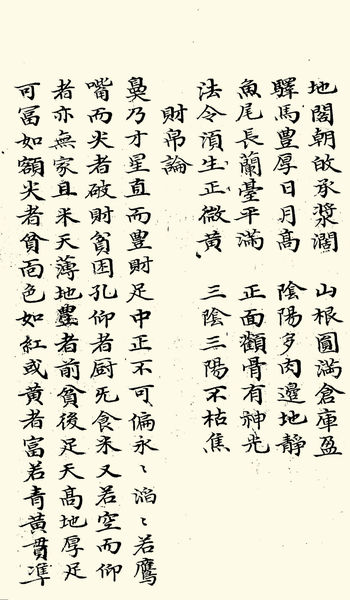 地閣朝㪺承漿濶　山根圓滿倉庫盈
驛馬豊厚日月高　陰陽多肉邊地靜
魚尾長蘭臺平滿　正面顴骨有神光
法令須生正微黄　三陰三陽不枯焦
財帛論
鼻乃才星直而豊財足中正不可偏永丶滔丶若鷹
嘴而尖者破財貧困孔仰者厨旡食米又若空而仰
者亦無家且米天薄地豊者前貧後足天髙地厚足
可冨如額尖者貧面色如紅或黄者富若青黄貫準